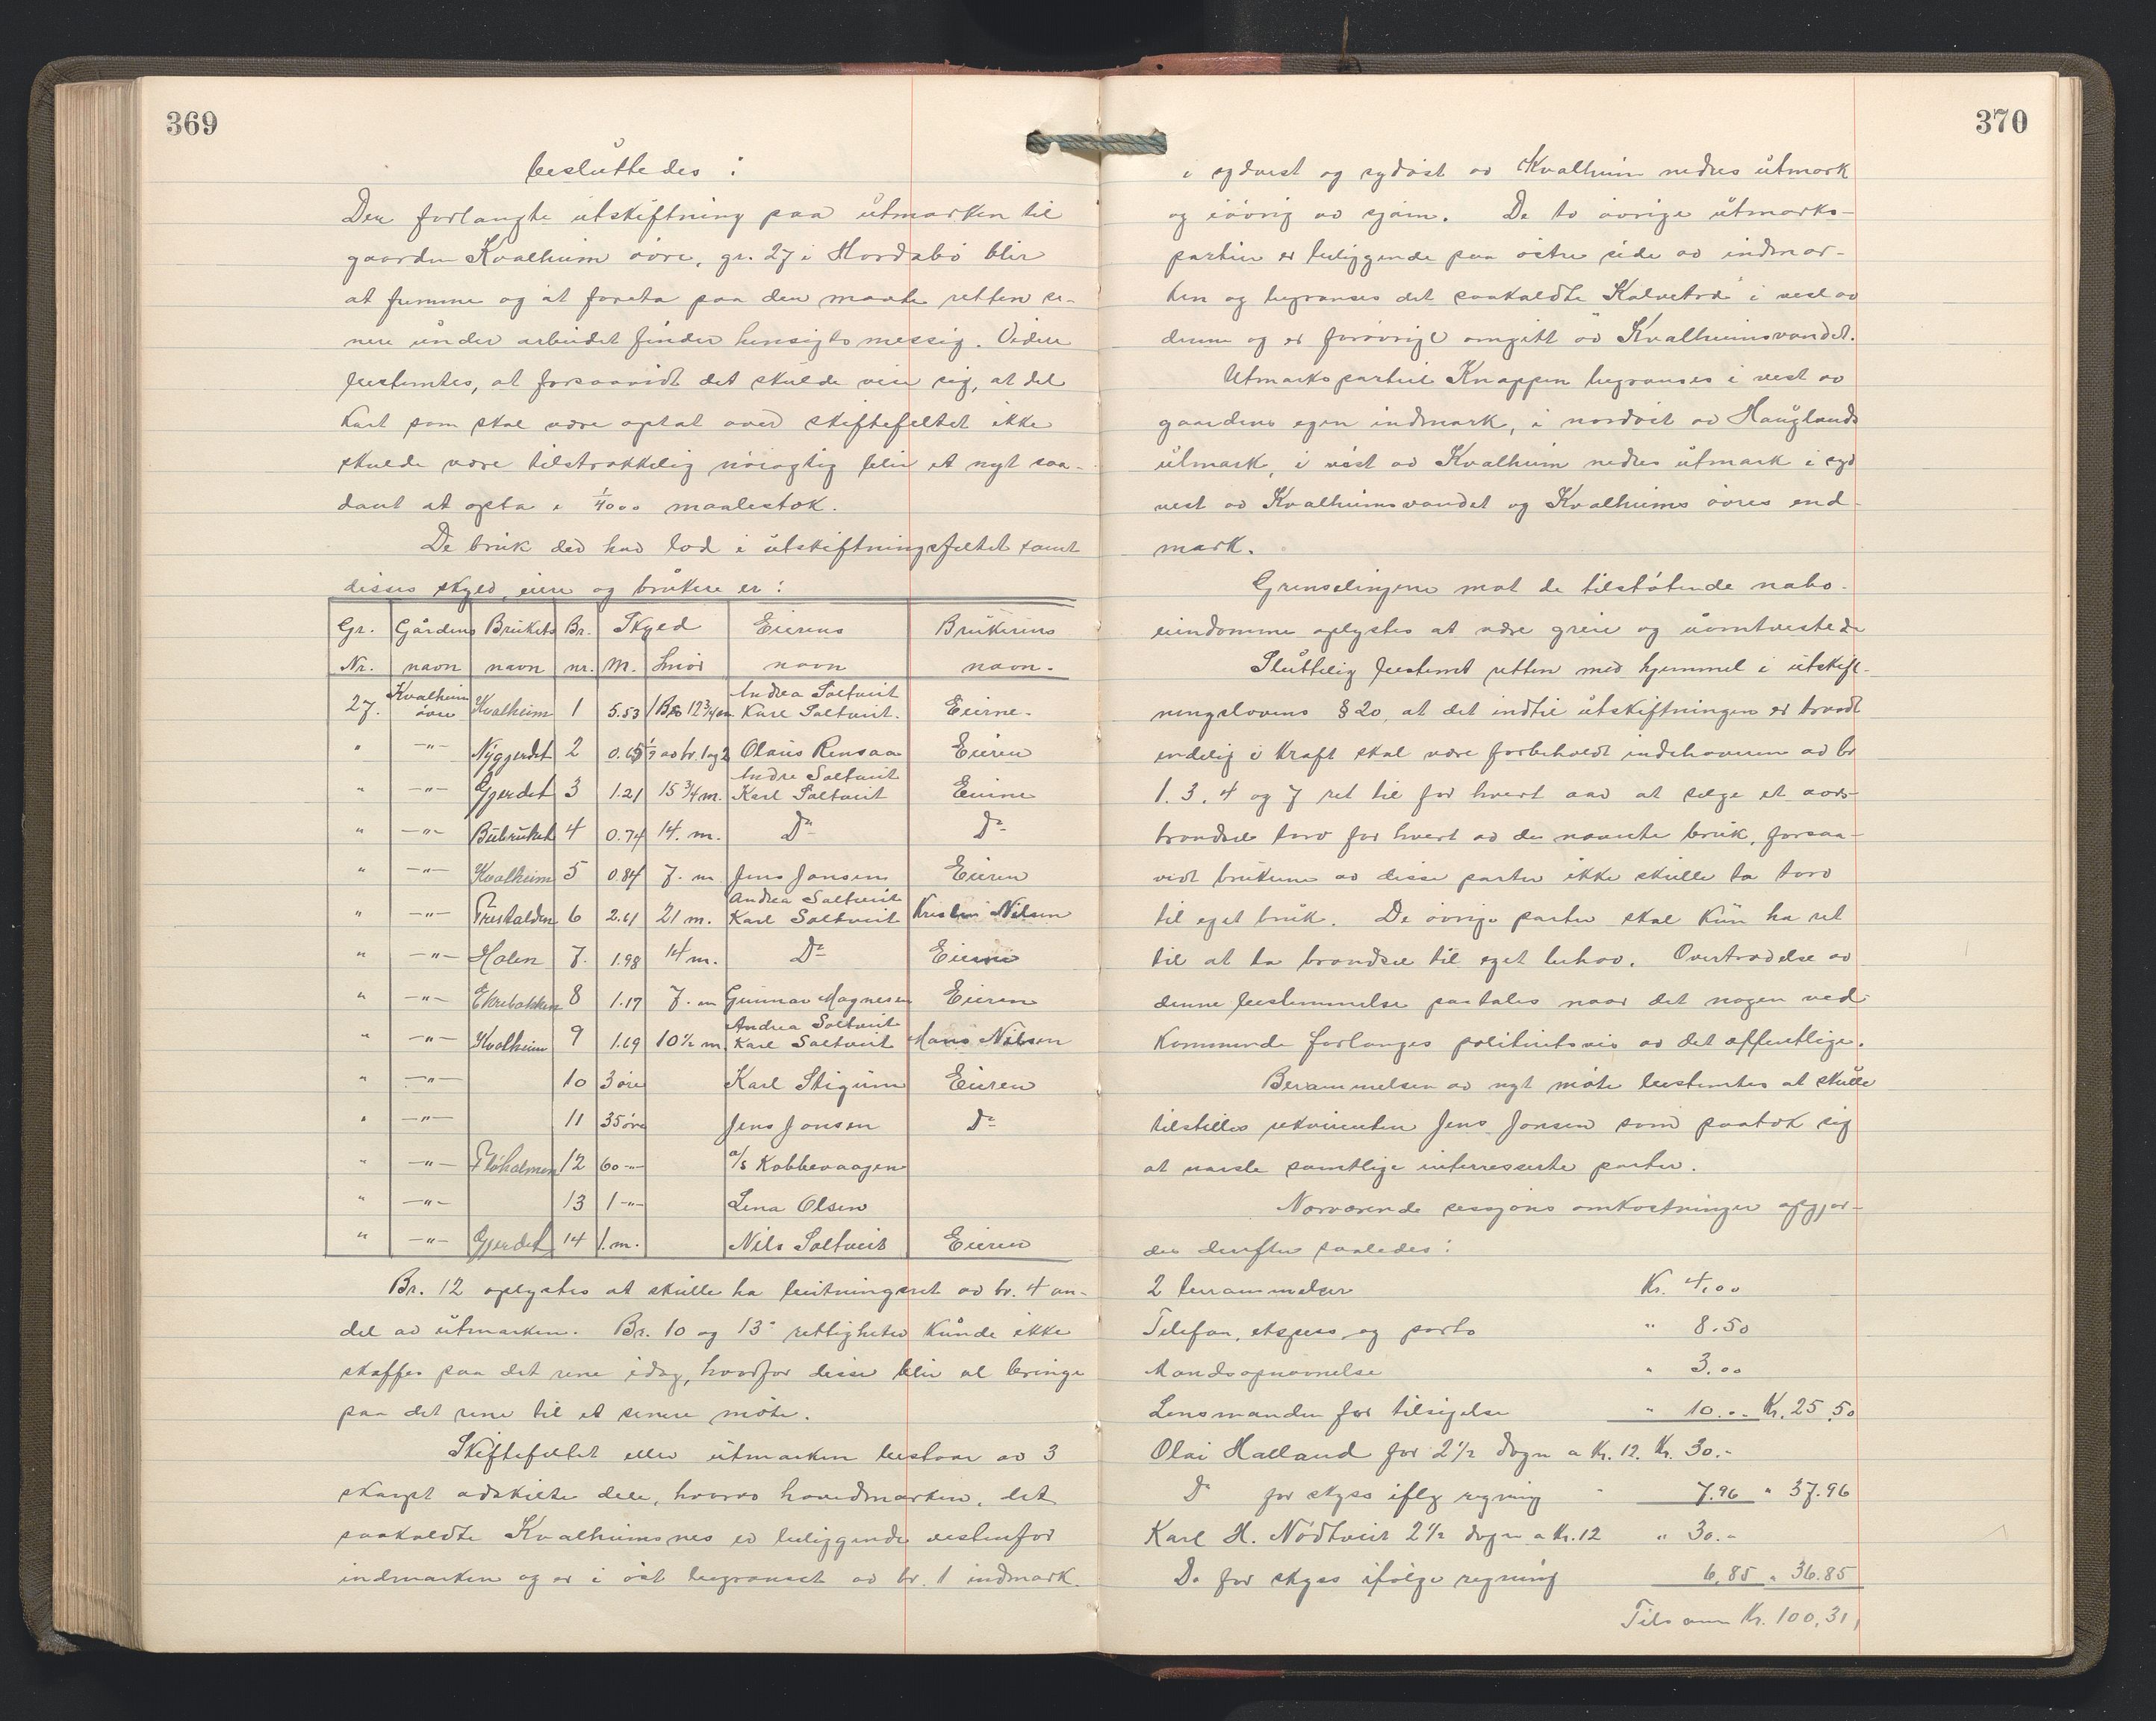 369
besluttedes :
Den forlangte utskiftning paa utmarken til
gaarden Kvalheim øvre, gr. 27 i Hordabø blir
at fremme og at foreta paa den maate retten se-
nere under arbeidet finder hensigtsmessig. Videre
bestemtes, at forsaavidt det skulde vise sig, at det
kart som skal være optat over skiftefeltet ikke
skulde være tilstrækkelig nøiagtig blir et nyt saa-
dant at opta i 1/4000 maalestok.
De bruk der har lod i utskiftningsfeltet samt
disses skyld, eiere og brukere er :
Gr. Nr. | Gårdens navn | Brukets navn | Br. nr. | Skyld M. | Smör | Eierens navn | Brukerens navn.
27. | Kvalheim övre | Kvalheim | 1 | 5.53 | 1 B℔ 12 3/4 m | Andrea Saltveit Karl Saltveit. | Eierne.
" | -"- | Nygjerdet | 2 | 0.65 | 1/7 av br. 1 og 2 | Olaus Rensaa | Eieren
" | -"- | Gjerdet | 3 | 1.21 | 15 3/4 m. | Andre Saltveit Karl Saltveit | Eierne
" | -"- | Bübruket | 4 | 0.74 | 14. m. | Do | Do
" | -"- | Kvalheim | 5 | 0.84 | 7. m | Jens Jansen | Eieren
" | -"- | Treskalden | 6 | 2.61 | 21 m. | Andrea Saltveit Karl Saltveit | Kristen Nilsen
" | -"- | Holen | 7. | 1.98 | 14 m. | Do | Eierne
" | -"- | Ekrebakken | 8 | 1.17 | 7. m | Gunnar Magnesen | Eieren
" | -"- | Kvalheim | 9 | 1.69 | 10 1/2 m. | Andrea Saltveit Karl Saltveit | Hans Nilsen
" | -"- | 10 | 3 øre | Karl Stigum | Eieren
" | -"- | 11 | 35 øre | Jens Jansen | Do
" | -"- | Fløholmen | 12 | 60 -"- | a/s Kobbevaagen
" | -"- | 13 | 1 -"- | Lena Olsen
" | -"- | Gjerdet | 14 | 1. m. | Nils Saltveit | Eieren
Br. 12 oplystes at skulle ha beitningsret av br. 4 an-
del av utmarken. Br. 10 og 13s rettigheter kunde ikke
skaffes paa det rene idag, hvorfor disse blir at bringe
paa det rene til et senere møte.
Skiftefeltet eller utmarken bestaar av 3
skarpt adskilte dele, hvorav hovedmarken, det
saakaldte Kvalheimsnes er beliggende vestenfor
indmarken og er i øst begrænset av br. 1 indmark.
370
i sydvest og sydøst av Kvalheim nedres utmark
og iøvrig av sjøen. De to øvrige utmarks-
partier er beliggende paa østre side av indmar-
ken og begrænses det saakaldte "Kalvetræ" i vest av
denne og er forøvrig omgitt av Kvalheimsvandet.
Utmarkspartiet Knappen begrænses i vest av
gaardens egen indmark, i nordøst av Hauglands
utmark, i vest av Kvalheim nedres utmark i syd
vest av Kvalheimsvandet og Kvalheims øvres end-
mark.
Grenselinjene mot de tilstøtende nabo-
eiendomme oplystes at være greie og uomtvistede
Sluttelig bestemt retten med hjemmel i utskift-
ningslovens § 20, at det indtil utskiftningen er traadt
endelig i kraft skal være forbeholdt indehaveren av br
1. 3. 4 og 7 ret til for hvert aar at selge et aars-
brændsel torv for hvert av de nævnte bruk, forsaa-
vidt brukerne av disse parter ikke skulle ta torv
til eget bruk. De øvrige parter skal kun ha ret
til at ta brændsel til eget behov. Overtrædelse av
denne bestemmelse paatales naar det nogen ved-
kommende forlanges politirettsvis av det offentlige.
Berammelsen av nyt møte bestemtes at skulle
tilstilles rekvirenten Jens Jansen som paatok sig
at varsle samtlige interresserte parter.
Nærværende sessjons omkostninger opgjør-
des derefter saaledes :
2 berammelser Kr. 4,00
Telefon, ekspres og porto " 8.50
Mandsopnævnelse " 3.00
Lensmanden for tilsigelse " 10.- Kr. 25.50
Olai Halland for 2 1/2 døgn a Kr. 12. Kr. 30.-
Do for skyss iflg regning " 7.96 " 37.96
Karl H. Nödtveit 2 1/2 døgn a Kr. 12 " 30.-
Do for skyss ifølge regning 6,85 " 36.85
Tilsam Kr. 100,31